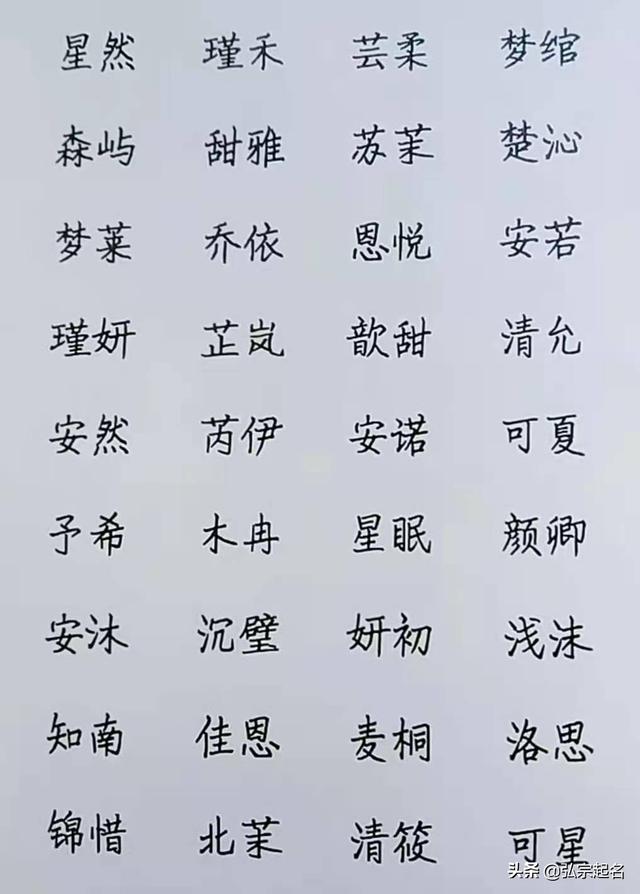 星然 瑾禾 芸柔 梦绾
森屿 甜雅 苏茉 楚沁
梦莱 乔依 恩悦 安若
瑾妍 芷岚 歆甜 清允
安然 芮伊 安诺 可夏
予希 木冉 星眠 颜卿
安沐 沉璧 妍初 浅沫
知南 佳恩 麦桐 洛思
锦惜 北茉 清筱 可星
头条 @弘宗起名